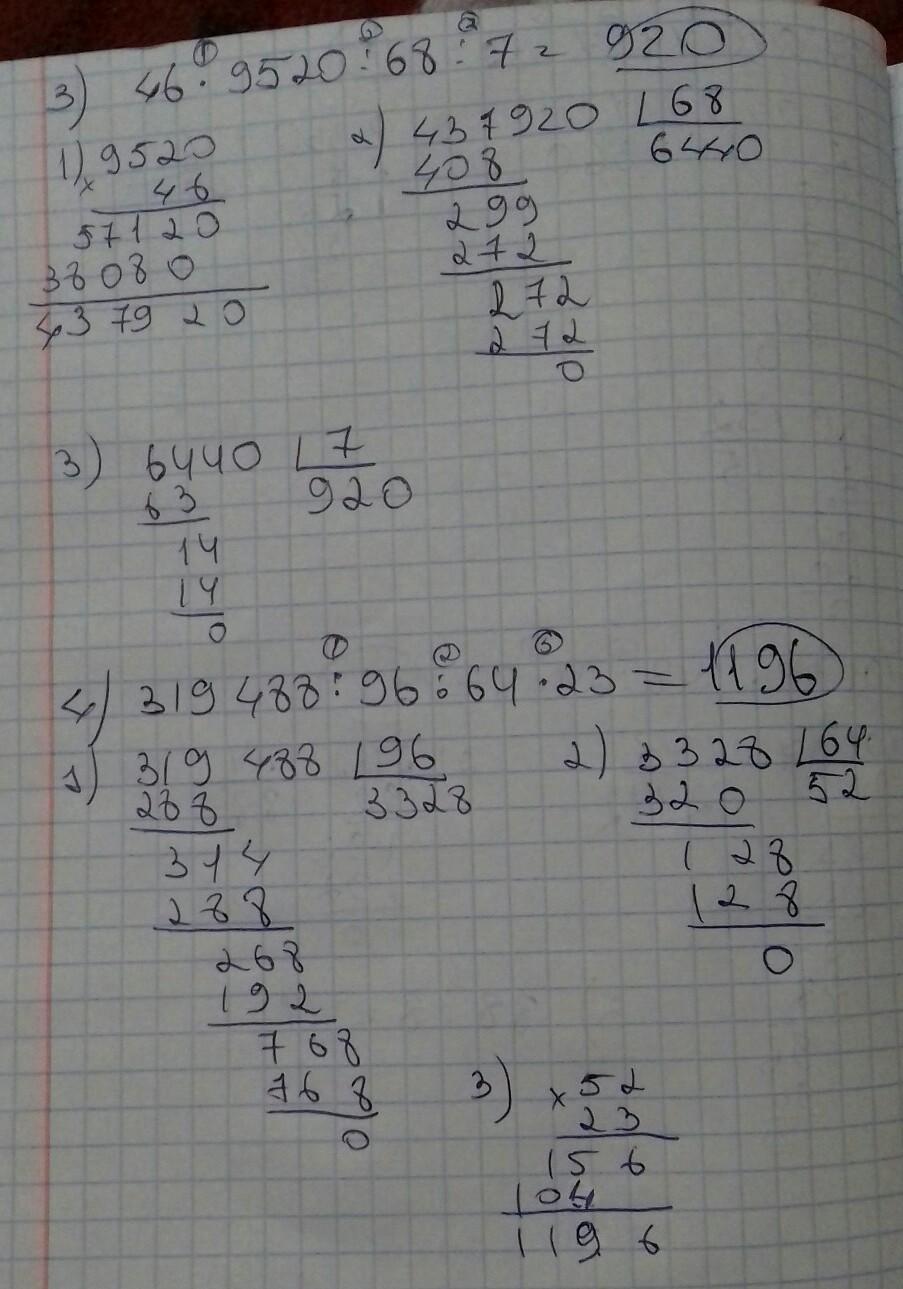 3) 46 · 9520 : 68 : 7 = 920
① ② ③
1) 9520
× 46
57120
38080
437920
2) 437920 | 68
408 6440
299
272
272
272
0
3) 6440 | 7
63 920
14
14
0
① ② ③
4) 319 488 : 96 : 64 · 23 = 1196
1) 319 488 | 96
288 3328
314
288
268
192
768
768
0
2) 3328 | 64
320 52
128
128
0
3) × 52
23
156
104
1196